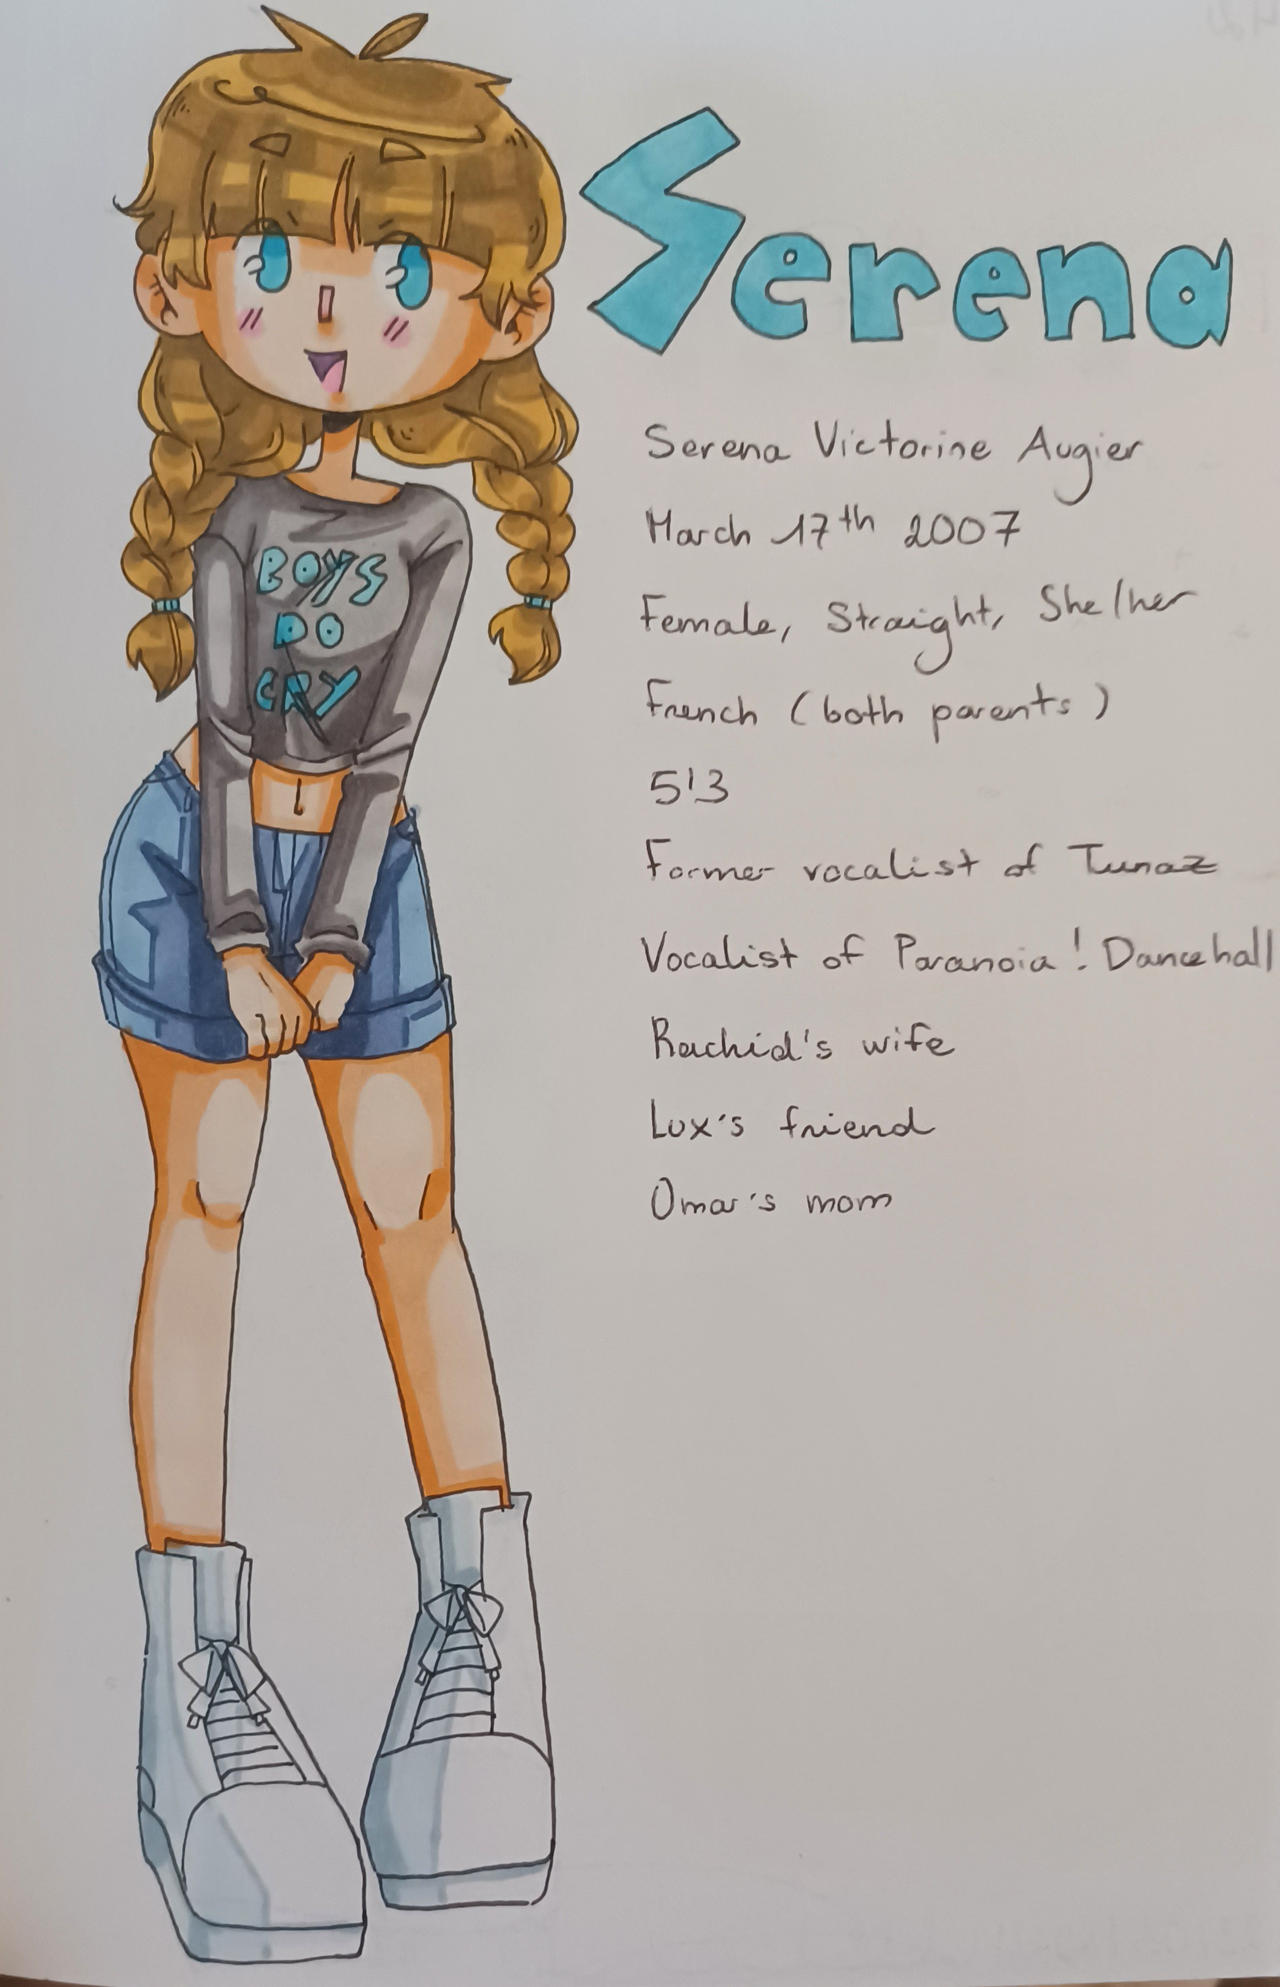 Serena
BOYS
DO
CRY
Serena Victorine Augier
March 17th 2007
Female, Straight, She/her
French (both parents)
5'3
Former vocalist of Tunaz
Vocalist of Paranoia! Dancehall
Rachid's wife
Lux's friend
Omar's mom